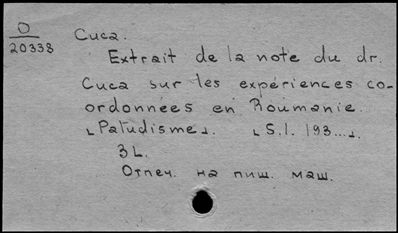 О
20338
Cuca.
Extrait de la note du dr.
Cuca sur les expériences co-
ordonnées en Roumanie.
[Paludisme]. [S.l. 193...].
3 L.
Отпеч. на пиш. маш.